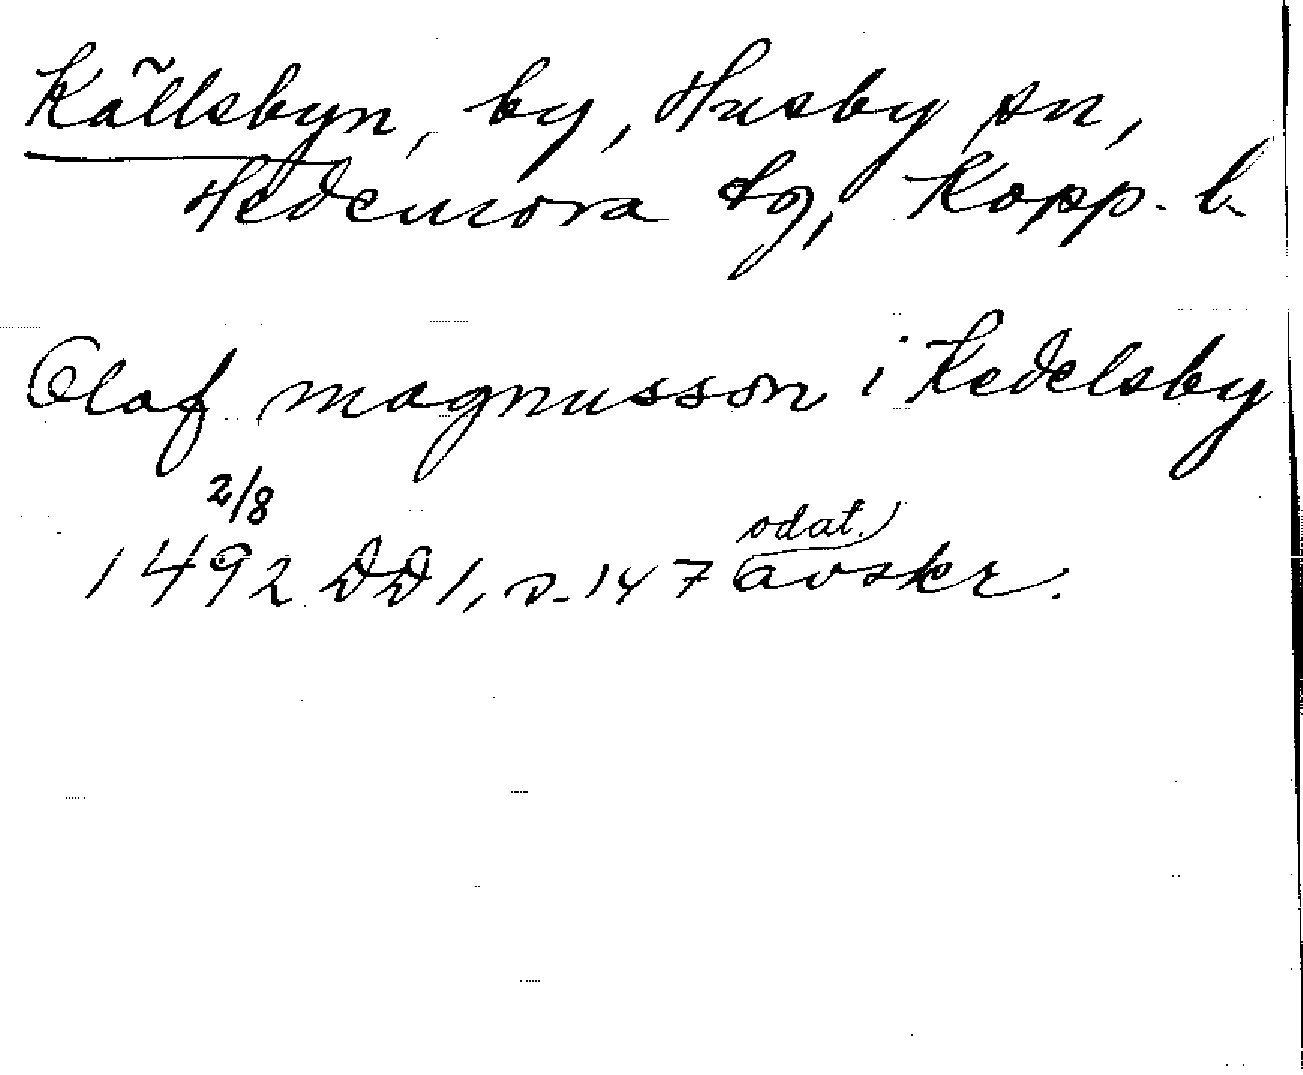 Källsbyn, by, Husby sn,
Hedemora tg, Kopp. l.
Olaf magnusson i Kedelsby
2/8
odat.
1492 DD 1, s. 147 avskr.